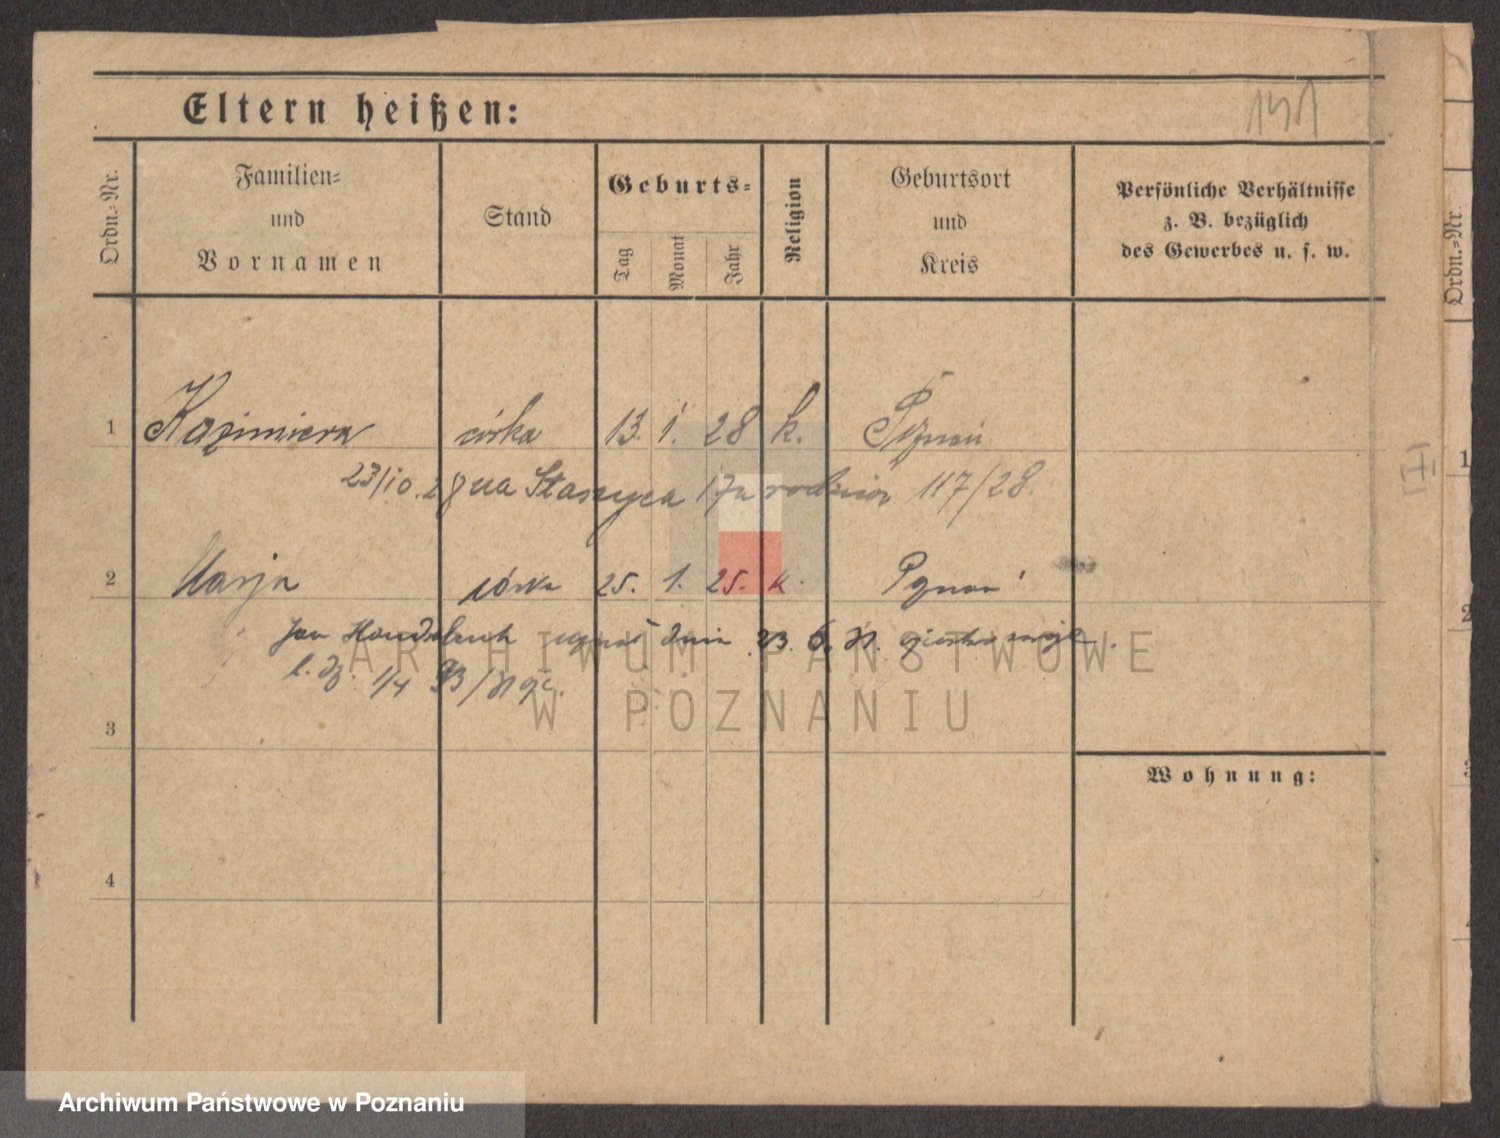 Eltern heißen:
141
Ordn.-Nr.
Familien-
und
Vornamen
Stand
Geburts-
Tag
Monat
Jahr
Religion
Geburtsort
und
Kreis
Persönliche Verhältnisse
z. B. bezüglich
des Gewerbes u. s. w.
Ordn.-Nr.
1 Kazimiera córka 13. 1. 28 k. Poznań
23/10.28 na Staszyca 17a rodzice 117/28.
2 Marja córka 25. 1. 25. k. Poznań
Jan uznał dnia 23. 6. 31.
1/4 93/31
3
4
Wohnung:
1
2
ARCHIWUM PAŃSTWOWE
W POZNANIU
Archiwum Państwowe w Poznaniu